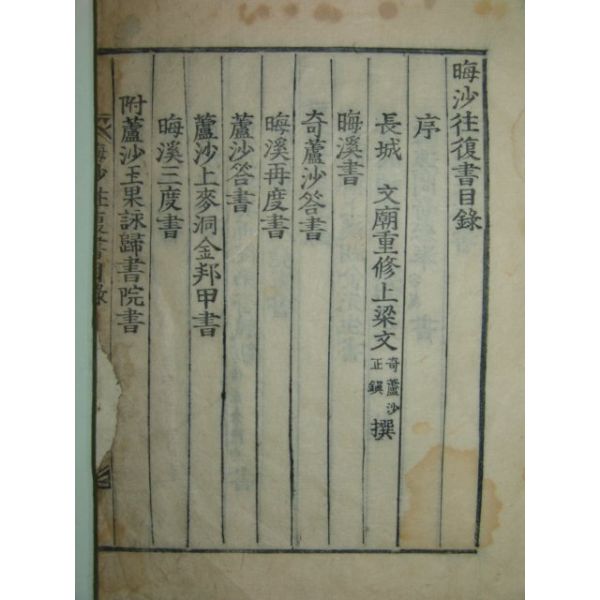 晦沙往復書目錄
序
長城 文廟重修上梁文 奇蘆沙正鎭 撰
晦溪書
奇蘆沙答書
晦溪再度書
蘆沙答書
蘆沙上麥洞金邦甲書
晦溪三度書
附蘆沙玉果詠歸書院書
晦沙往復書目錄